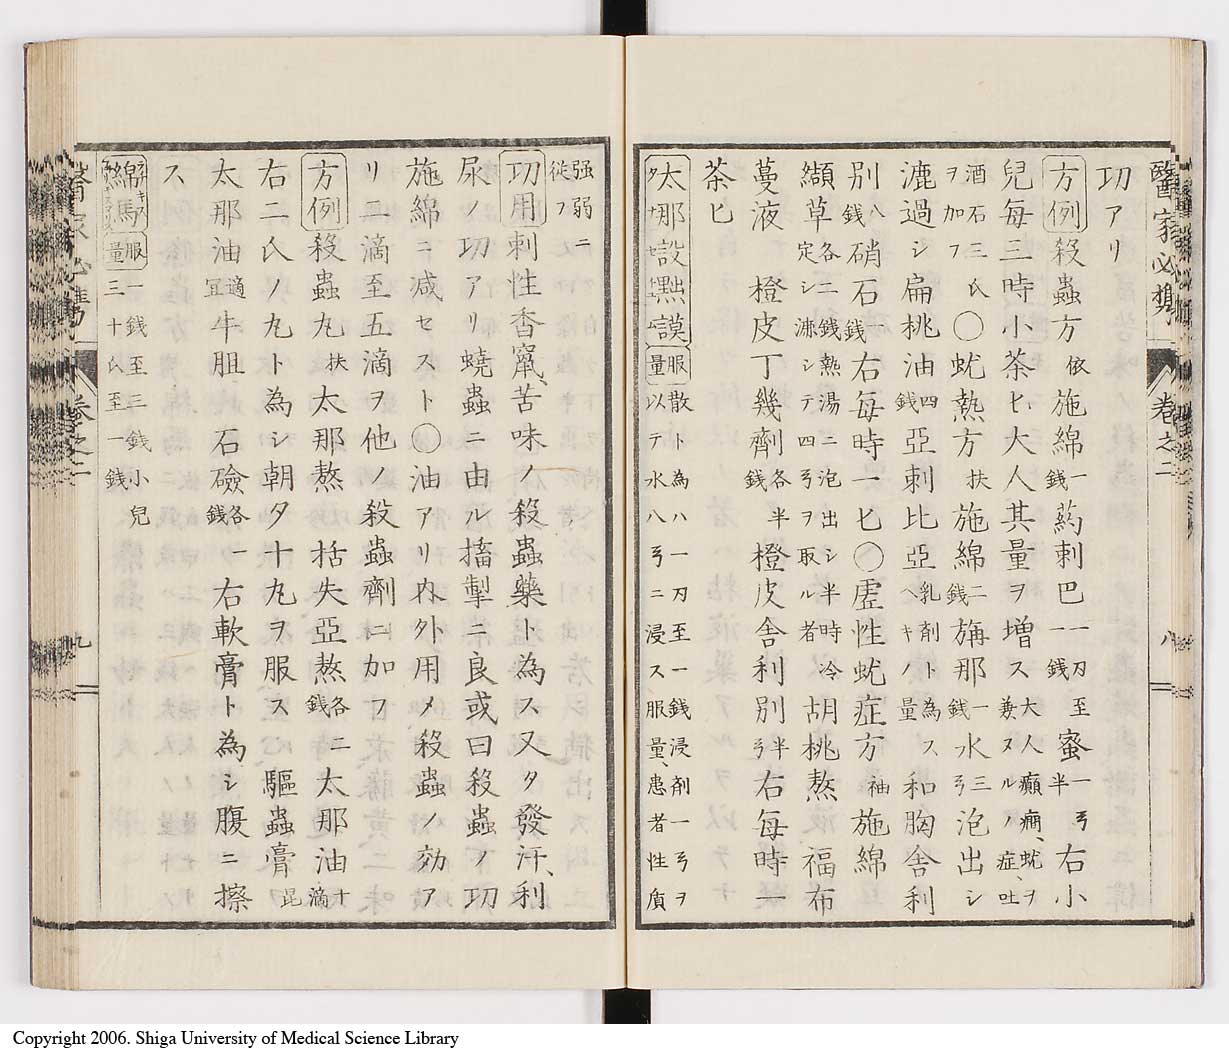 醫家必携 卷之二 八
功アリ
方例 殺蟲方 依 施綿 一錢 葯刺巴 一刃至一錢 蜜 一弓半 右小
兒每三時小茶匕大人其量ヲ增ス 大人癲癇、蚘ヲ兼ヌルノ症、吐
酒石三氏ヲ加フ 〇蚘熱方 扶 施綿 二錢 旃那 一錢 水 三弓 泡出シ
漉過シ扁桃油 四錢 亞刺比亞 乳劑ト為スヘキノ量 和胸舍利
別 八錢 硝石 一錢 右每時一匕〇虛性蚘症方 袖 施綿
纈草 各二錢熱湯ニ泡出シ半時冷定シ淋シテ四弓ヲ取ル者 胡桃熬 福布
蔓液 橙皮丁幾劑 各半錢 橙皮舍利別 半弓 右每時一
茶匕
太那設㸃謨 タナセチユム 服量 散ト為ハ一刃至一錢浸劑一弓ヲ以テ水八弓ニ浸ス服量、患者性質
强弱ニ從フ
功用 刺性香竄、苦味ノ殺蟲藥ト為ス又タ發汗、利
尿ノ功アリ蟯蟲ニ由ル搐掣ニ良或曰殺蟲ノ功
施綿ニ減セスト〇油アリ內外用メ殺蟲ノ効ア
リ二滴至五滴ヲ他ノ殺蟲劑ニ加フ
方例 殺蟲丸 扶 太那熬 括失亞熬 各二錢 太那油 十滴
右二氏ノ丸ト為シ朝夕十九ヲ服ス 驅蟲膏 昆
太那油 適宜 牛胆 石鹼 各一錢 右軟膏ト為シ腹ニ擦
ス
綿馬 服量 一錢至三錢小兒三十氏至一錢
醫家必携 卷之二 九
Copyright 2006. Shiga University of Medical Science Library